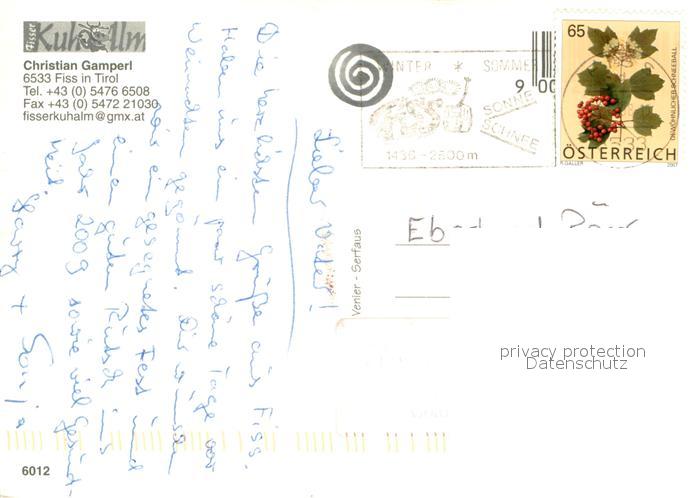 Fisser
Kuhalm
Christian Gamperl
6533 Fiss in Tirol
Tel. +43 (0) 5476 6508
Fax +43 (0) 5472 21030
fisserkuhalm@gmx.at
Lieber Vater!
Die herzlichsten Grüße aus Fiss.
Haben uns ein paar schöne Tage vor
Weihnachten gegönnt. Dir wünschen
wir ein gesegnetes Fest und
einen guten Rutsch ins
Jahr 2009 sowie viel Gesund-
heit.
+ Sonja
6012
WINTER * SOMMER
SONNE
SCHNEE
1436-2800m
9 00
65
GEWÖHNLICHER SCHNEEBALL
ÖSTERREICH
K.GALLER
2007
Venier - Serfaus
privacy protection
Datenschutz